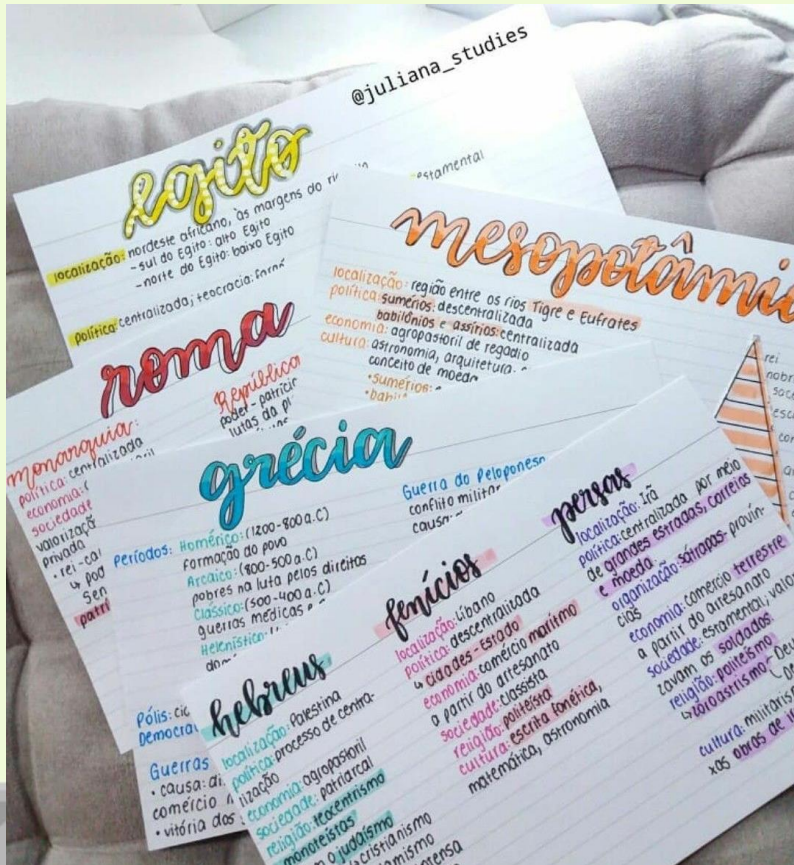 @juliana_studies
egito
localização: nordeste africano, às margens do
estamental
-sul do Egito: alto Egito
-norte do Egito: baixo Egito
política: centralizada; teocracia:
mesopotâmi
localização: região entre os rios Tigre e Eufrates
política: sumérios: descentralizada
babilônios e assírios: centralizada
economia: agropastoril de regadio
cultura: astronomia, arquitetura,
conceito de moeda
•sumérios:
rei
roma
monarquia:
política: centralizada
economia:
sociedade
valorização
privada
• rei-
República
poder-patríci
lutas da
grécia
Períodos: Homérico: (1200-800 a.C)
Formação do povo
Arcaico: (800-500 a.C)
pobres na luta pelos direitos
Clássico: (500-400 a.C)
guerras médicas e
Helenístico:
Guerra do Peloponeso
conflito militar
causa:
Pólis:
Democra
Guerras
• causa:
comércio
• vitória dos
hebreus
localização: Palestina
política: processo de centra-
lização
economia: agropastoril
sociedade: patriarcal
religião: teocentrismo
monoteístas
o judaísmo
cristianismo
fenícios
localização: Líbano
política: descentralizada
↳ cidades-Estado
economia: comércio marítimo
a partir do artesanato
sociedade: classista
religião: politeísta
cultura: escrita fonética,
matemática, astronomia
persas
localização: Irã
política: centralizada por meio
de grandes estradas, correios
e moeda.
organização: sátrapas- provín-
cias
economia: comércio terrestre
a partir do artesanato
sociedade: estamental, valor
zavam os soldados
religião: politeísmo
↳ zoroastrismo
cultura: militaris
xas obras de